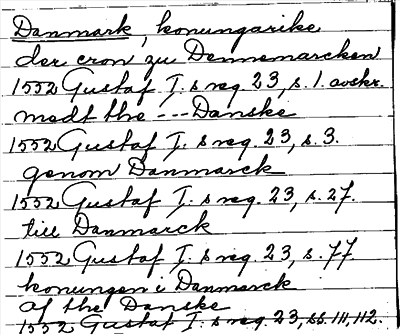 Danmark, konungarike
der cron zu Dennemarcken
1552 Gustaf I. s reg. 23, s. 1. avskr.
medt the --- Danske
1552 Gustaf I. s reg. 23, s. 3.
genom Danmarck
1552 Gustaf I. s reg. 23, s. 27.
till Danmarck
1552 Gustaf I. s reg. 23, s. 77
konungen i Danmarck
af the Danske
1552 Gustaf I. s reg. 23, ss. 111, 112.